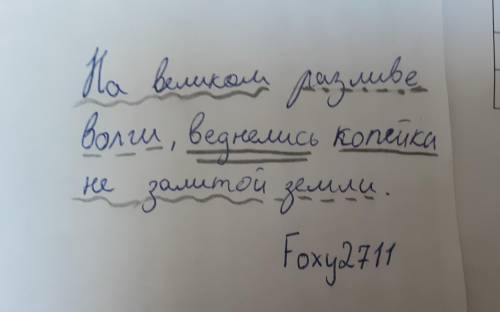 На великом разливе
волги, веднелись копейка
не залитой земли.
Foxy2711